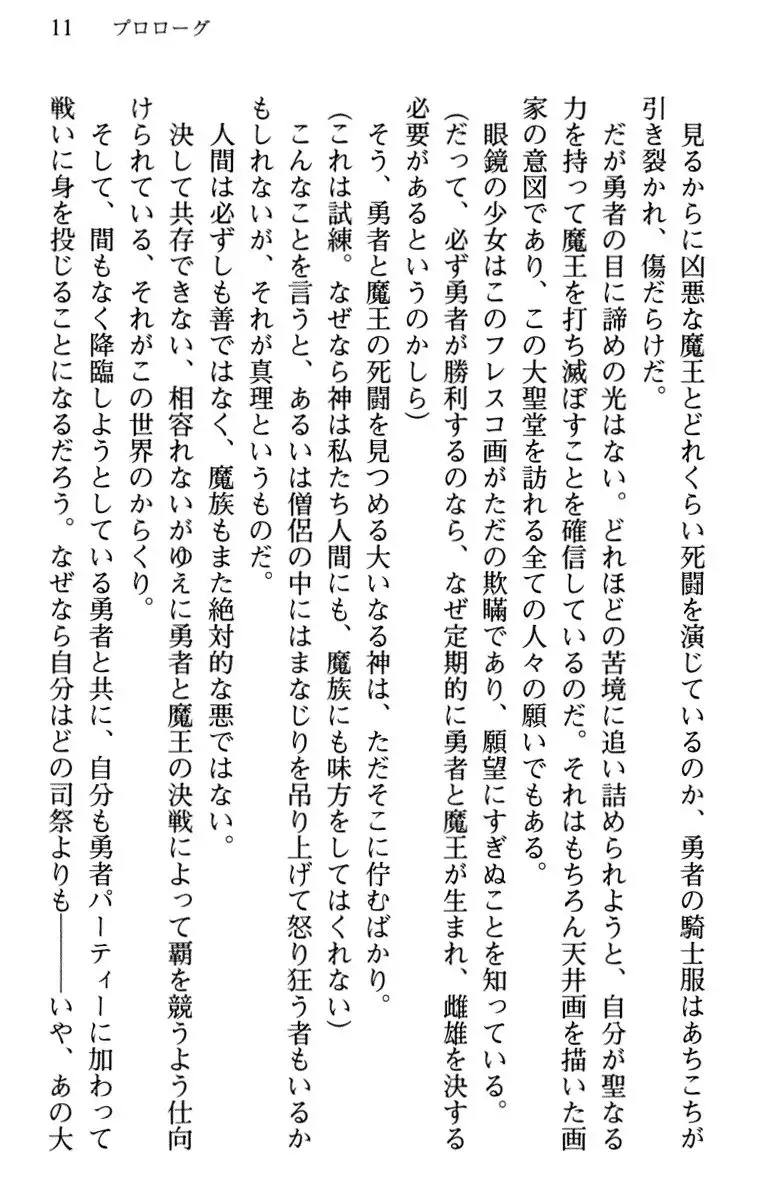 11　プロローグ
見るからに凶悪な魔王とどれくらい死闘を演じているのか、勇者の騎士服はあちこちが
引き裂かれ、傷だらけだ。
だが勇者の目に諦めの光はない。どれほどの苦境に追い詰められようと、自分が聖なる
力を持って魔王を打ち滅ぼすことを確信しているのだ。それはもちろん天井画を描いた画
家の意図であり、この大聖堂を訪れる全ての人々の願いでもある。
眼鏡の少女はこのフレスコ画がただの欺瞞であり、願望にすぎぬことを知っている。
(だって、必ず勇者が勝利するのなら、なぜ定期的に勇者と魔王が生まれ、雌雄を決する
必要があるというのかしら)
そう、勇者と魔王の死闘を見つめる大いなる神は、ただそこに佇むばかり。
(これは試練。なぜなら神は私たち人間にも、魔族にも味方をしてはくれない)
こんなことを言うと、あるいは僧侶の中にはまなじりを吊り上げて怒り狂う者もいるか
もしれないが、それが真理というものだ。
人間は必ずしも善ではなく、魔族もまた絶対的な悪ではない。
決して共存できない、相容れないがゆえに勇者と魔王の決戦によって覇を競うよう仕向
けられている、それがこの世界のからくり。
そして、間もなく降臨しようとしている勇者と共に、自分も勇者パーティーに加わって
戦いに身を投じることになるだろう。なぜなら自分はどの司祭よりも――いや、あの大